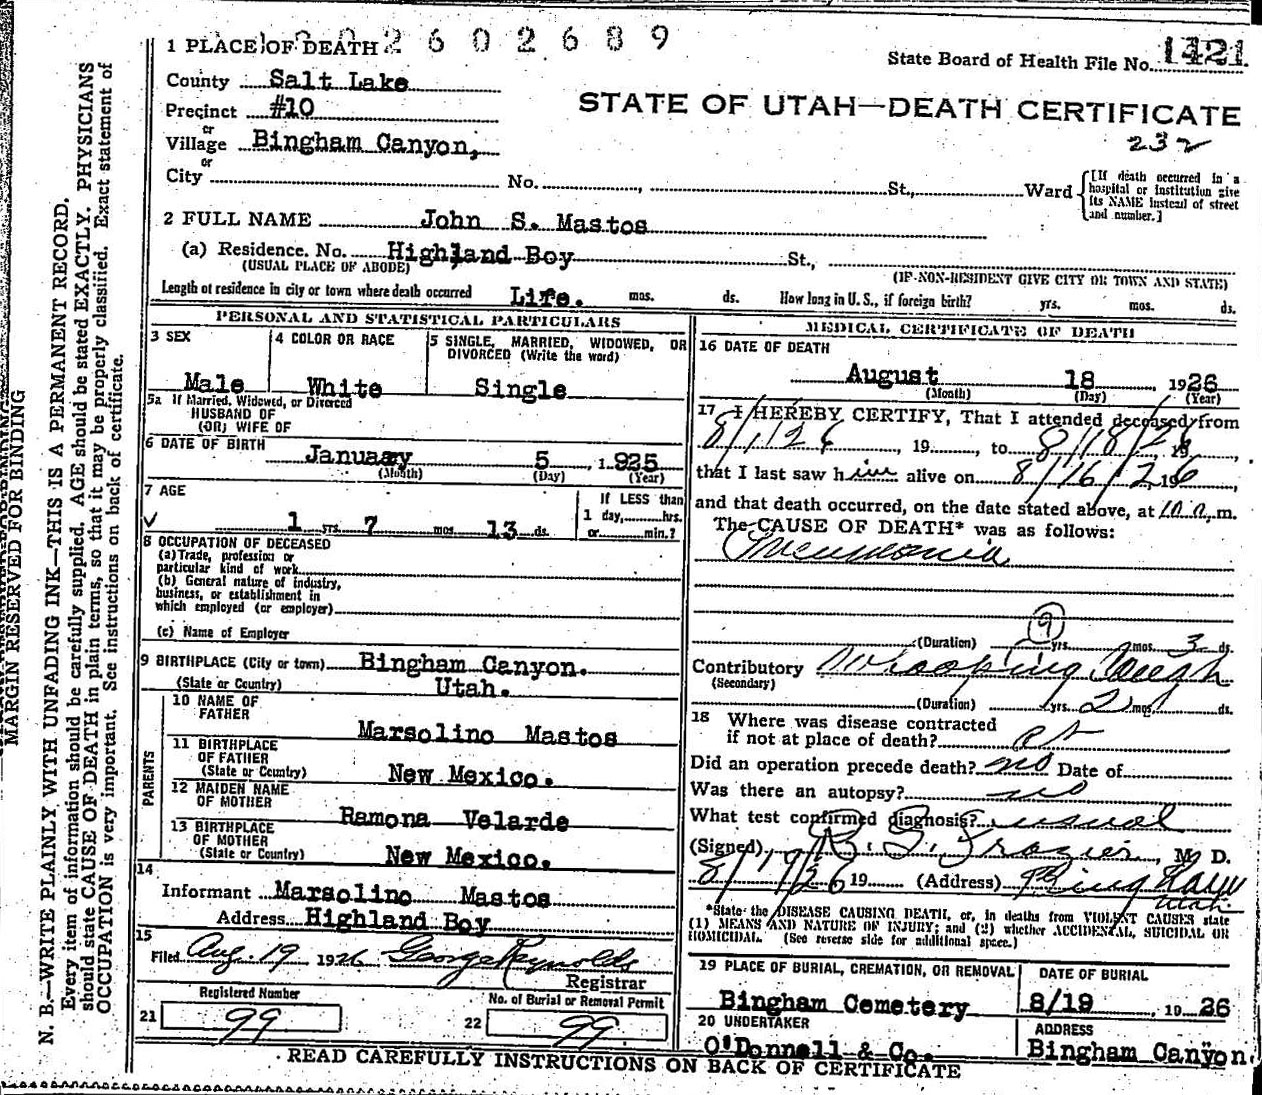 2602689
1 PLACE OF DEATH
State Board of Health File No. 1421
County Salt Lake
Precinct #10
STATE OF UTAH—DEATH CERTIFICATE
232
or
Village Bingham Canyon,
or
City No. , St., Ward
[If death occurred in a hospital or institution give its NAME instead of street and number.]
2 FULL NAME John S. Mastos
(a) Residence. No. Highland Boy St.,
(USUAL PLACE OF ABODE) (IF NON-RESIDENT GIVE CITY OR TOWN AND STATE)
Length of residence in city or town where death occurred Life. mos. ds. How long in U. S., if foreign birth? yrs. mos. ds.
PERSONAL AND STATISTICAL PARTICULARS
3 SEX
Male
4 COLOR OR RACE
White
5 SINGLE, MARRIED, WIDOWED, OR
DIVORCED (Write the word)
Single
5a If Married, Widowed, or Divorced
HUSBAND OF
(OR) WIFE OF
6 DATE OF BIRTH
January 5 1925
(Month) (Day) (Year)
7 AGE
1 yrs. 7 mos. 13 ds.
If LESS than
1 day, hrs.
or min.?
8 OCCUPATION OF DECEASED
(a) Trade, profession or
particular kind of work
(b) General nature of industry,
business, or establishment in
which employed (or employer)
(c) Name of Employer
9 BIRTHPLACE (City or town) Bingham Canyon.
(State or Country) Utah.
PARENTS
10 NAME OF
FATHER
Marsolino Mastos
11 BIRTHPLACE
OF FATHER
(State or Country) New Mexico.
12 MAIDEN NAME
OF MOTHER
Ramona Velarde
13 BIRTHPLACE
OF MOTHER
(State or Country) New Mexico.
14
Informant Marsolino Mastos
Address Highland Boy
15
Filed Aug. 19 1926 George Reynolds
Registrar
Registered Number
21 99
No. of Burial or Removal Permit
22 99
MEDICAL CERTIFICATE OF DEATH
16 DATE OF DEATH
August 18 1926
(Month) (Day) (Year)
17 I HEREBY CERTIFY, That I attended deceased from
8/1/26, 19 , to 8/18/26 19 ,
that I last saw him alive on 8/16/26, 19 ,
and that death occurred, on the date stated above, at 10 a.m.
The CAUSE OF DEATH* was as follows:
Pneumonia
9
(Duration) yrs. mos. 3 ds.
Contributory Whooping Cough
(Secondary)
(Duration) yrs. 2 mos. ds.
18 Where was disease contracted
if not at place of death?
Did an operation precede death? no Date of
Was there an autopsy? no
What test confirmed diagnosis? usual
(Signed) Frazier, M. D.
8/19/26 19 (Address) Bingham
Utah.
*State the DISEASE CAUSING DEATH, or, in deaths from VIOLENT CAUSES state
(1) MEANS AND NATURE OF INJURY; and (2) whether ACCIDENTAL, SUICIDAL OR
HOMICIDAL. (See reverse side for additional space.)
19 PLACE OF BURIAL, CREMATION, OR REMOVAL
Bingham Cemetery
DATE OF BURIAL
8/19 , 19 26
20 UNDERTAKER
O'Donnell & Co.
ADDRESS
Bingham Canyon
READ CAREFULLY INSTRUCTIONS ON BACK OF CERTIFICATE
MARGIN RESERVED FOR BINDING
N. B.—WRITE PLAINLY WITH UNFADING INK—THIS IS A PERMANENT RECORD.
Every item of information should be carefully supplied. AGE should be stated EXACTLY. PHYSICIANS
should state CAUSE OF DEATH in plain terms, so that it may be properly classified. Exact statement of
OCCUPATION is very important. See instructions on back of certificate.